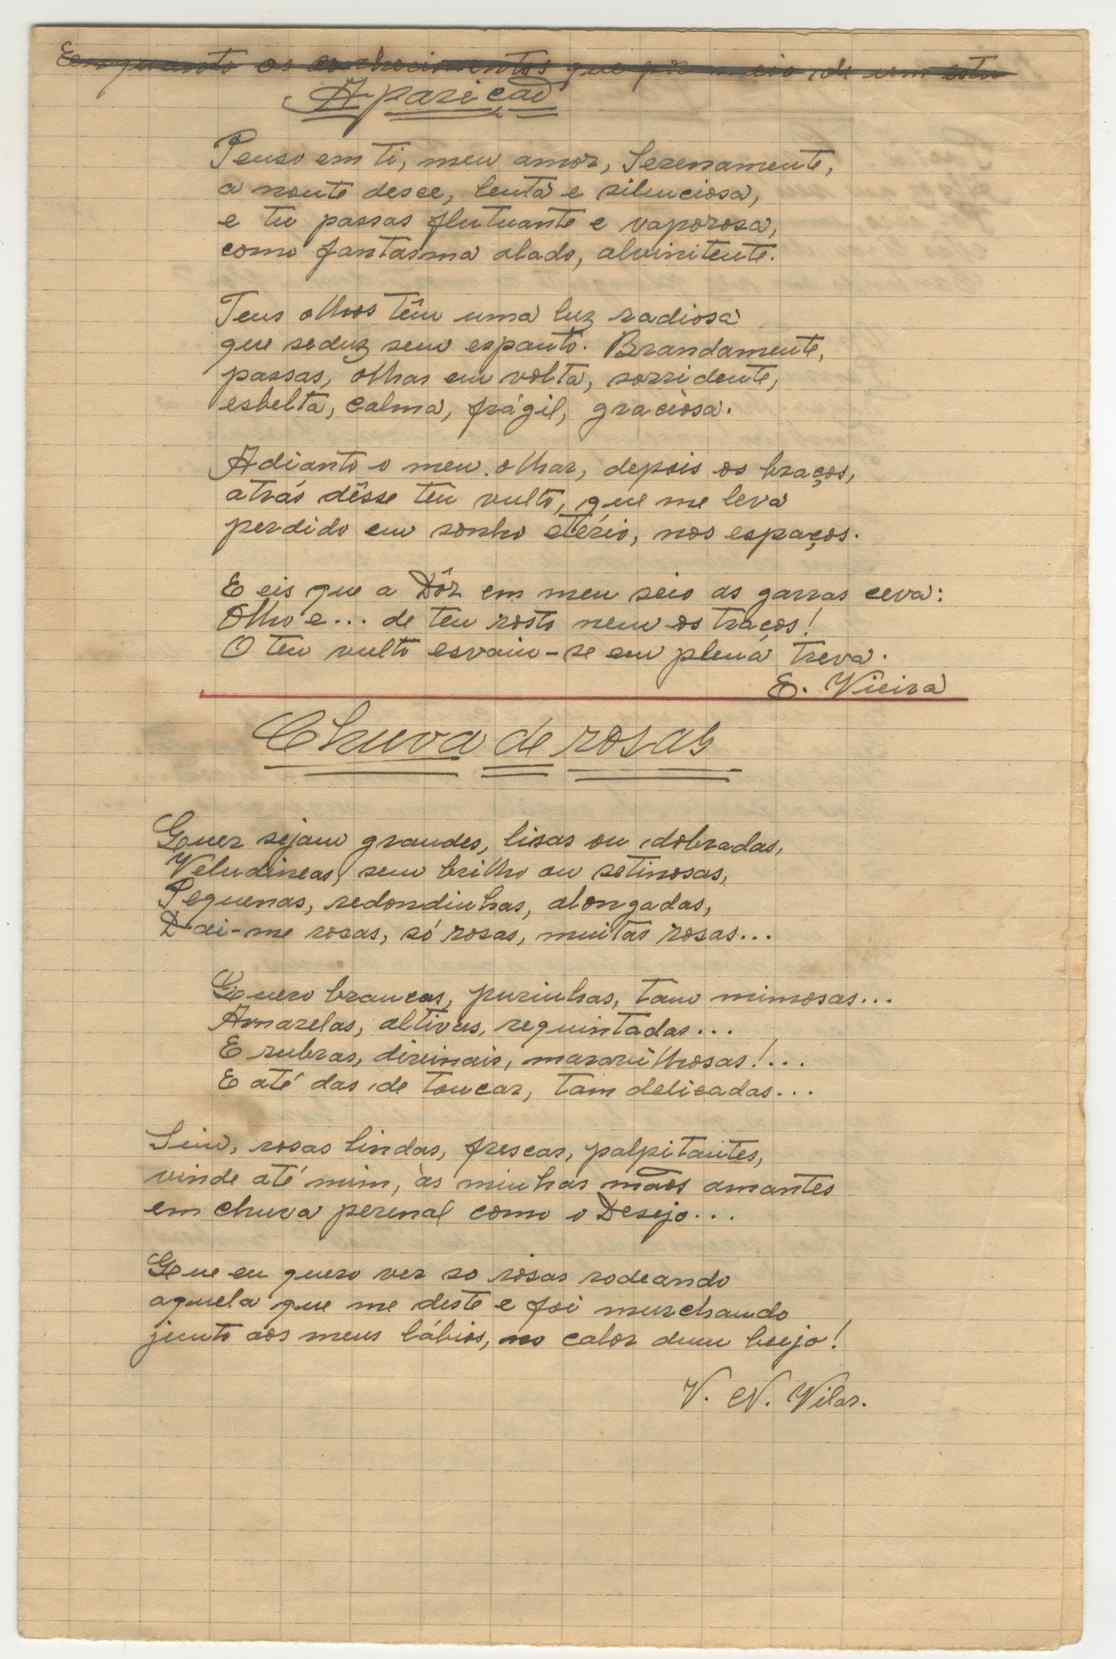 Enquanto os conhecimentos que por meio de um estu
Aparição
Penso em ti, meu amor, Serenamente,
a noute desce, lenta e silenciosa,
e tu passas flutuante e vaporosa,
como fantasma alado, alvinitente.
Teus olhos têm uma luz radiosa
que seduz sem espanto. Brandamente,
passas, olhas em volta, sorridente,
esbelta, calma, frágil, graciosa.
Adianto o meu olhar, depois os braços,
atrás dêsse teu vulto, que me leva
perdido em sonho etério, nos espaços.
E eis que a Dôr em meu seio as garras ceva:
Olho e... de teu rosto nem os traços!
O teu vulto esvaiu-se em plena treva.
E. Vieira
Chuva de rosas
Quer sejam grandes, lisas ou dobradas,
Veludineas, sem brilho ou setinosas,
Pequenas, redondinhas, alongadas,
Dai-me rosas, só rosas, muitas rosas...
Quero brancas, purinhas, tam mimosas...
Amarelas, altivas, requintadas...
E rubras, divinais, maravilhosas!...
E até das de toucar, tam delicadas...
Sim, rosas lindas, frescas, palpitantes,
vinde até mim, às minhas mãos amantes
em chuva perenal como o Desejo...
Que eu quero ver so rosas rodeando
aquela que me déste e foi murchando
junto aos meus lábios, no calor dum beijo!
V. N. Vilar.